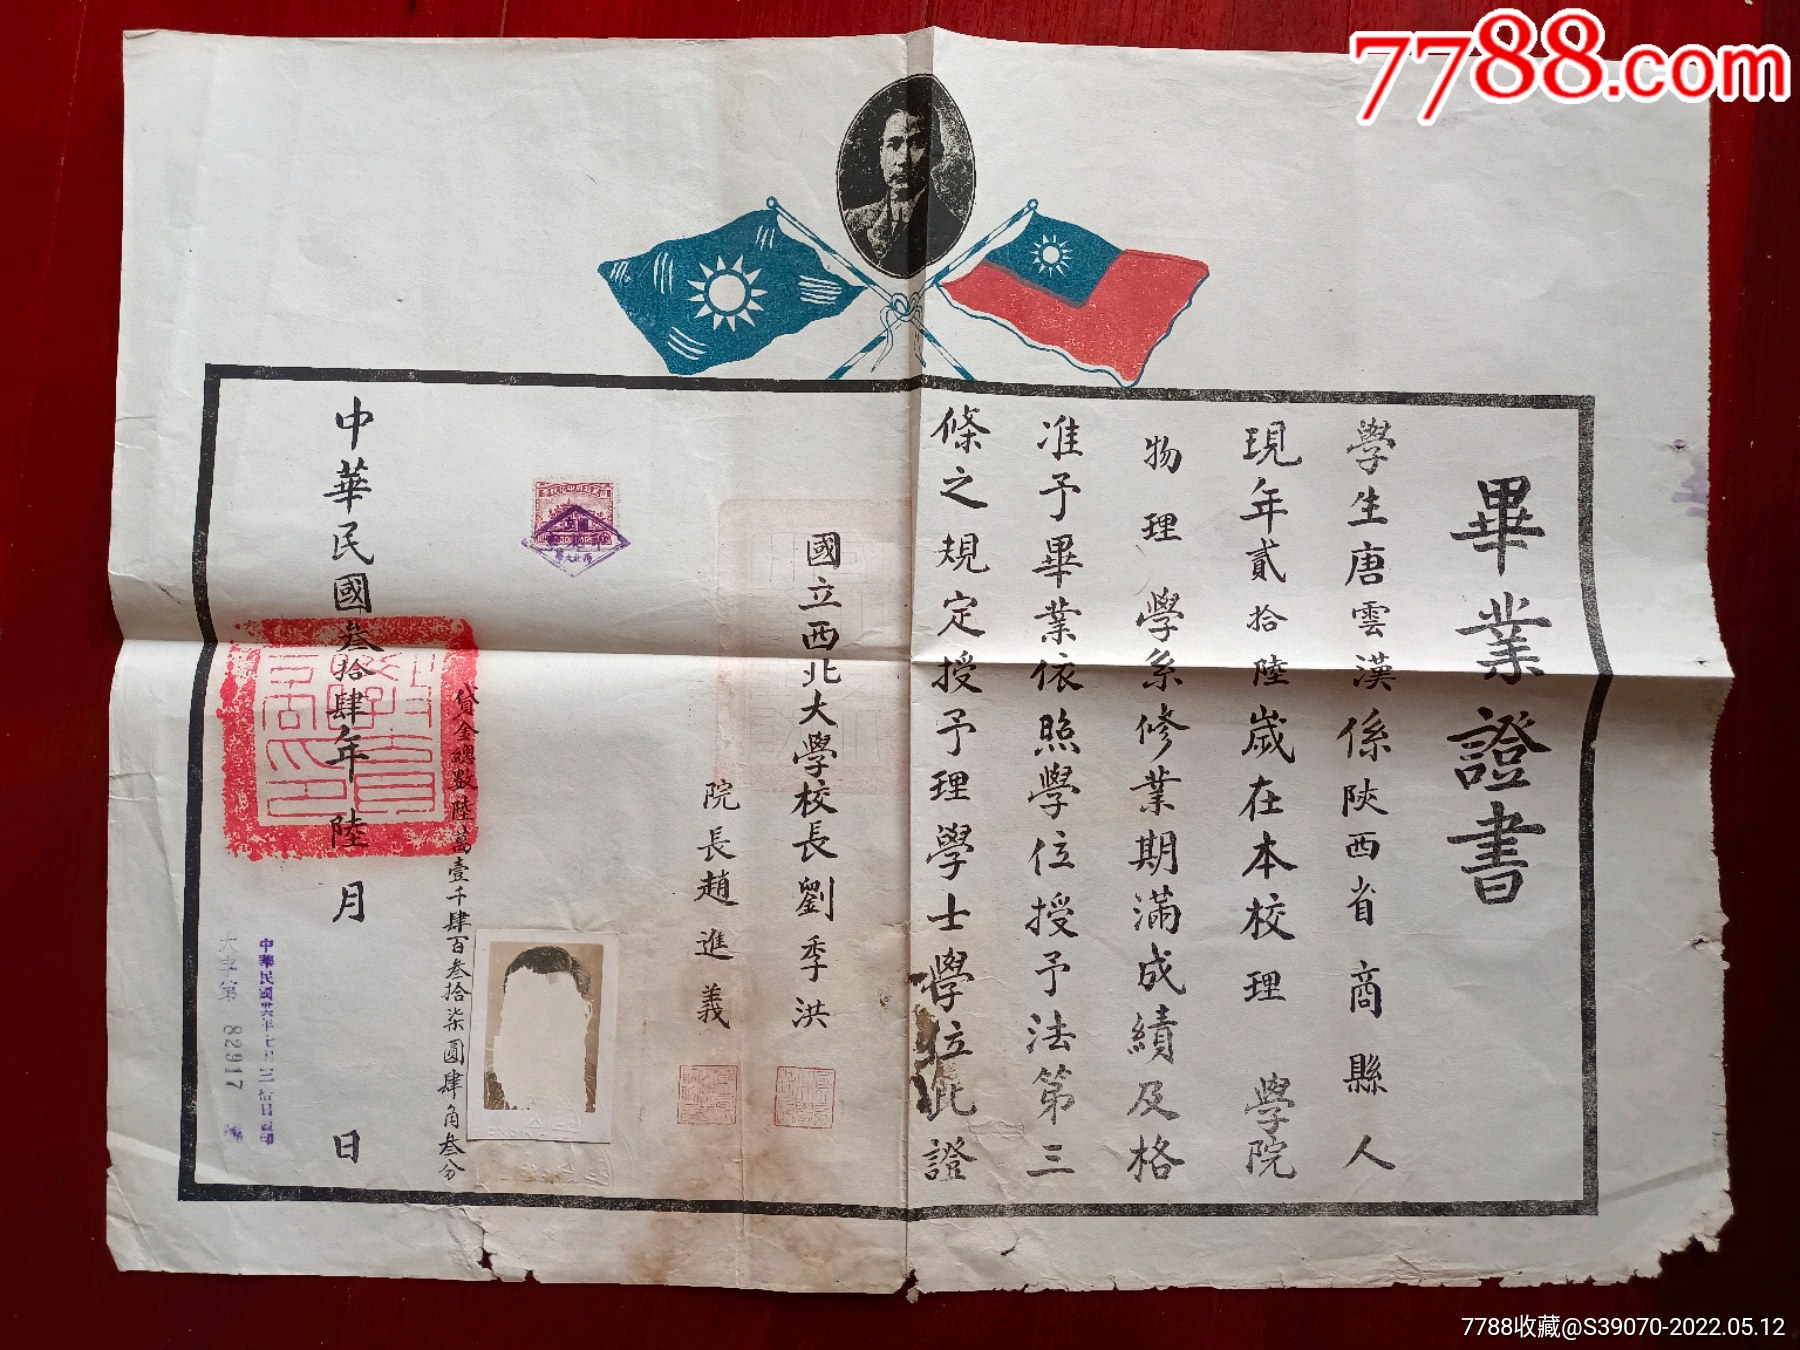 畢業證書
學生唐雲漢係陝西省商縣人
現年貳拾陸歲在本校理學院
物理學系修業期滿成績及格
准予畢業依照學位授予法第三
條之規定授予理學士學位此證
國立西北大學校長劉季洪
院長趙進義
貸金總數陸萬壹千肆百叁拾柒圓肆角叁分
中華民國叁拾肆年陸月 日
82917
7788.com
7788收藏@S39070-2022.05.12